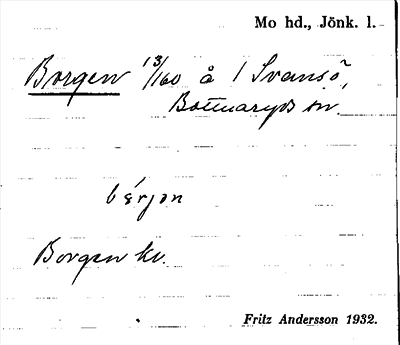 Mo hd., Jönk. l.
Borgen 13/160 å 1 Svansö,
Bottnaryds sn.
bérjon
Borgen kv.
Fritz Andersson 1932.